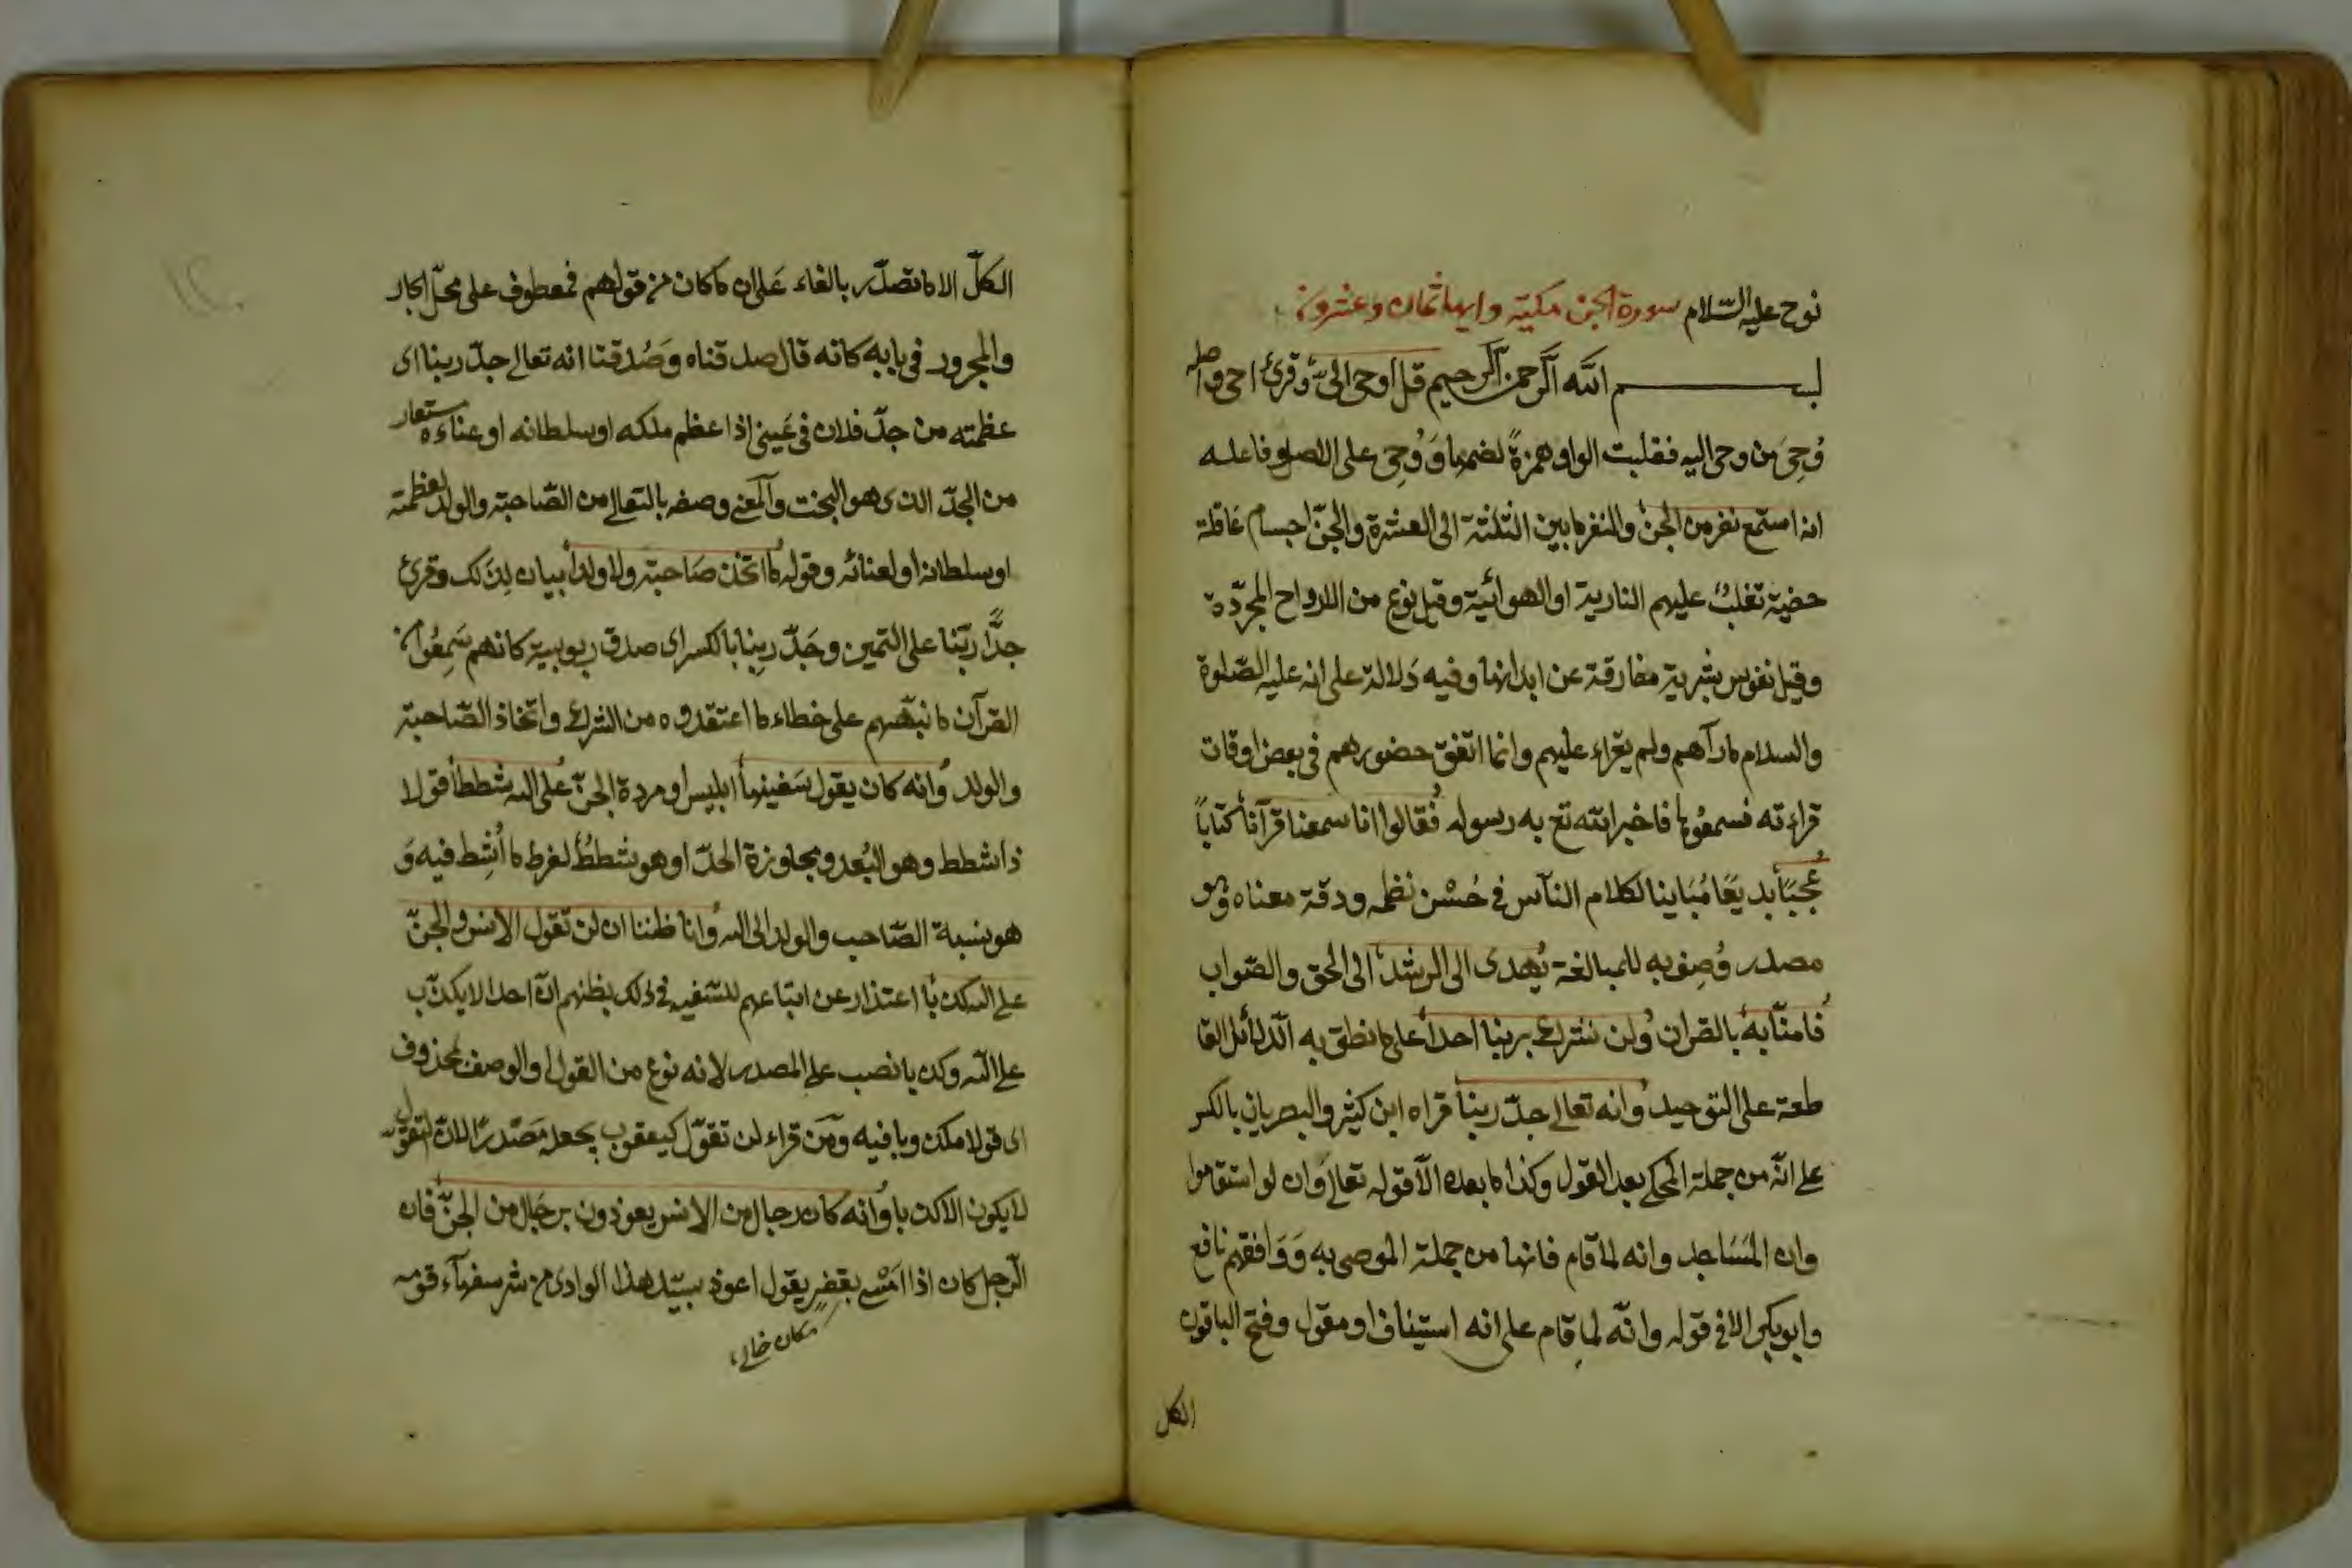 نوح عليه السّلام سورة الجن مكية وايها ثمان وعشرون
بسم الله الرحمن الرحيم قل اوحى الىّ وقرئ احى واصله
وُحِىَ من وحى اليه فقلبت الواو همزةً لضمها وَوُحِى على الاصل وفاعله
انه استمع نفر من الجنّ والنفر ما بين الثلثة الى العشرة والجنّ اجسام عاقلة
خفية تغلب عليهم النارية او الهوائية وقيل نوع من الارواح المجرّدة
وقيل نفوس بشرية مفارقة عن ابدانها وفيه دَلالة على انه عليه الصّلوة
والسلام ما رآهم ولم يقراء عليهم وانما اتفق حضورهم فى بعض اوقات
قراءته فسمعُوها فاخبر الله تع به رسوله فقالوا انا سمعنا قرآناً كتاباً
عُجَبًا بديعًا مُبَاينا لكلام النّاس فى حُسْن نظمه ودقة معناه وهو
مصدر وُصِف به للمبالغة يُهدى الى الرشد الى الحق والصّواب
فامنّا به بالقران ولن نشرك بربنا احداً على ما نطق به الدّلائل القا
طعة على التوحيد وانه تعالى جدّ ربنا قراه ابن كثير والبصريان بالكسر
على انّه من جملة المحكى بعد القول وكذا ما بعده الّا قوله تعالى وَان لو استقاموا
وان المَسَاجد وانه لما قام فانها من جملة الموحى به وَوَافقهم نافع
وابو بكر الا فى قوله وانّه لما قام على انه استيناف او مقول وفتح الباقون
الكل
الكلّ الا ما تصدّر بالفاء عَلى ان ما كان من قولهم فمعطوف على محلّ الجار
والمجرور فى به كانه قال صدقناه وَصُدقنا انه تعالى جدّ ربنا اى
عظمته من جدّ فلان فى عَينى اذا عظم ملكه او سلطانه او غناءه مستعار
من الجدّ الذى هو البخت والمعنى وصفه بالتعالى من الصّاحبة والولد لعظمته
او سلطانه او لغنائه وقوله ما اتخذ صَاحبة ولا ولداً بيان لِذلك وقرئ
جدًّا ربّنا على التمييز وجَدّ ربِنا بالكسر اى صدق ربوبيته كانهم سَمِعُوا من
القرآن ما نبّههم على خطاء ما اعتقدوه من الشرك واتخاذ الصّاحبة
والولد وانه كان يقول سَفيهنا ابليس او مردة الجنّ على الله شططاً قولا
ذا شطط وهو البُعد ومجاوزة الحدّ او هو شططٌ لفرط ما اُشِط فيه وَ
هو نسبة الصّاحب والولد الى الله وانا ظننا ان لن تقول الانس والجنّ
على الله كذبا اعتذار عن اتباعهم للسّفيه فى ذلك بظنهم انّ احدا لا يكذب
على الله وكذبا نصب على المصدر لانه نوع من القول او الوصف لمحذوف
اى قولا مكذوبا فيه وَمَن قراء لن تقوّل كيعقوب جعله مَصْدرًا لانّ التقوّل
لا يكون الا كذبا وانه كان رجال من الانس يعوذون برجَال من الجنّ فان
الرّجل كان اذا امْسى بقفر يقول اعوذ بسيّد هذا الوادى من شر سفهآء قومه
مكان خالى